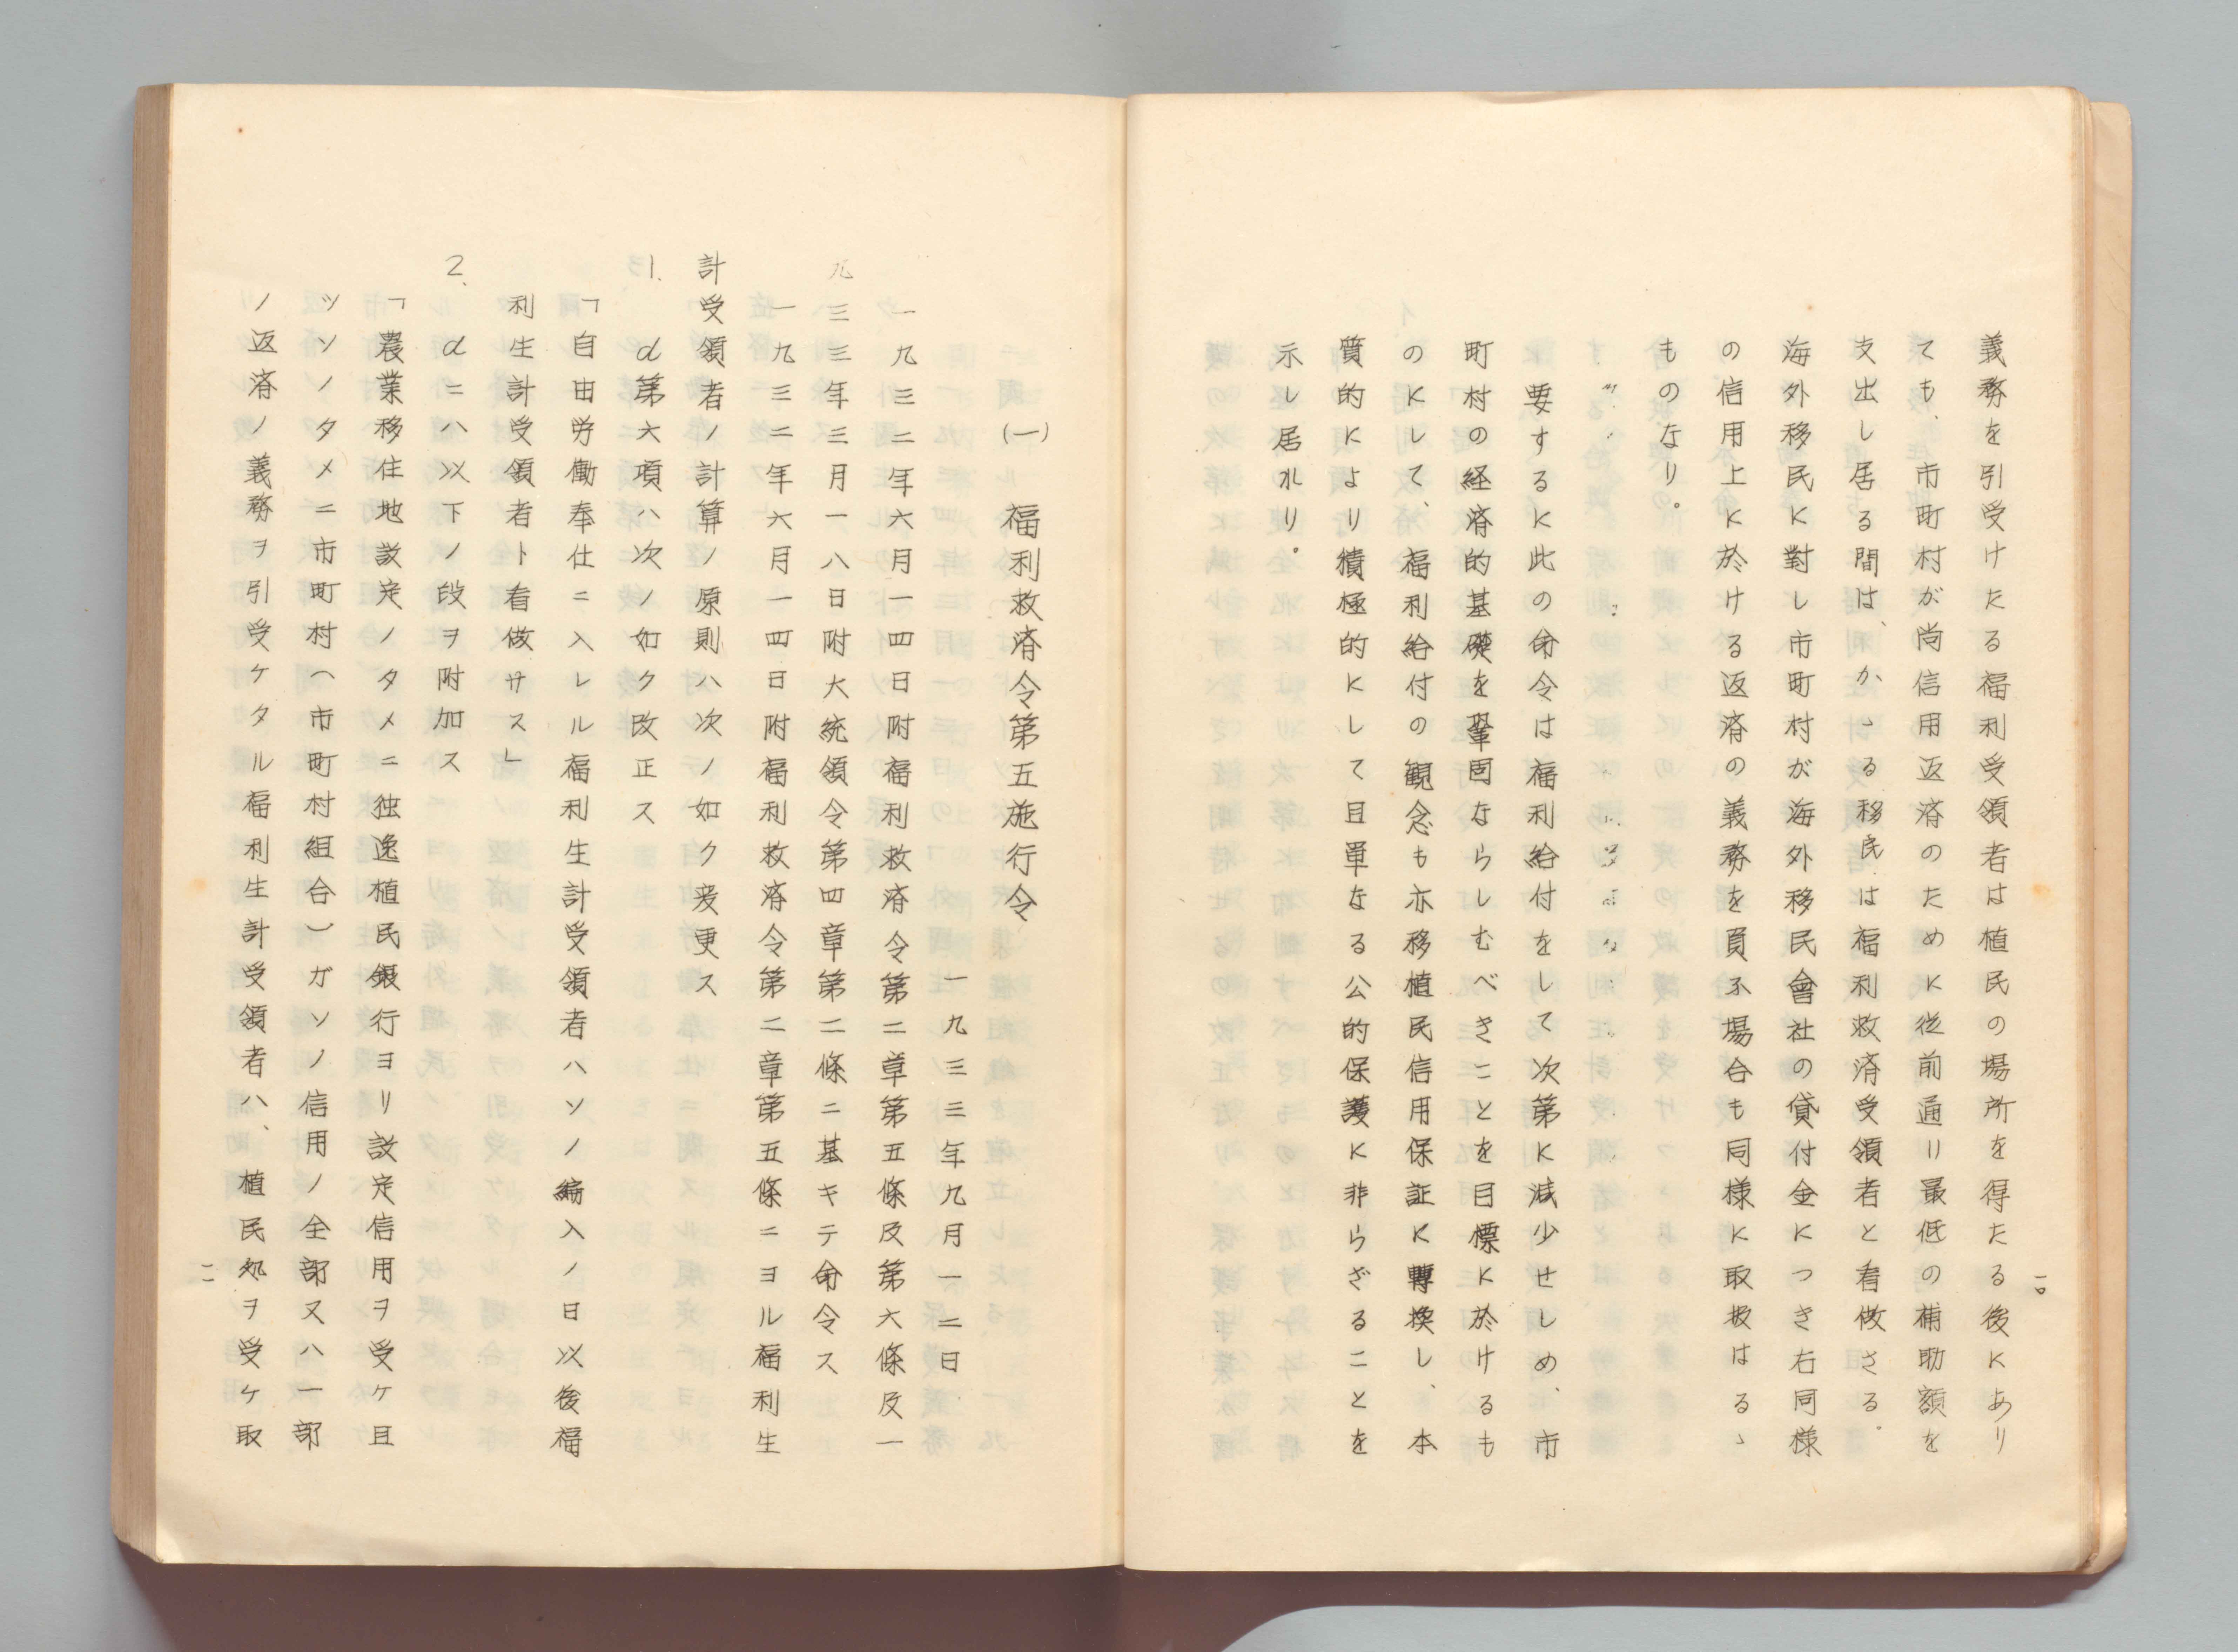 義務を引受けたる福利受領者は植民の場所を得たる後にあり
ても、市町村が尚信用返済のために従前通り最低の補助額を
支出し居る間は、かゝる移民は福利救済受領者と看做さる。
海外移民に對し市町村が海外移民會社の貸付金につき右同様
の信用上に於ける返済の義務を負ふ場合も同様に取扱はるゝ
ものなり。
要するに此の命令は福利給付をして次第に減少せしめ、市
町村の経済的基礎を鞏固ならしむべきことを目標に於けるも
のにして、福利給付の観念も亦移植民信用保証に轉換し、本
質的により積極的にして且単なる公的保護に非らざることを
示し居れり。
一〇
(一) 福利救済令第五施行令
一九三三年九月一二日
一九三二年六月一四日附福利救済令第二章第五條及第六條及一
九三三年三月一八日附大統領令第四章第二條ニ基キテ命令ス
一九三二年六月一四日附福利救済令第二章第五條ニヨル福利生
計受領者ノ計算ノ原則ハ次ノ如ク変更ス
1、d第六項ハ次ノ如ク改正ス
「自由労働奉仕ニ入レル福利生計受領者ハソノ編入ノ日以後福
利生計受領者ト看做サス」
2、dニハ以下ノ段ヲ附加ス
「農業移住地設定ノタメニ独逸植民銀行ヨリ設定信用ヲ受ケ且
ツソノタメニ市町村（市町村組合）ガソノ信用ノ全部又ハ一部
ノ返済ノ義務ヲ引受ケタル福利生計受領者ハ、植民処ヲ受ケ取
一一